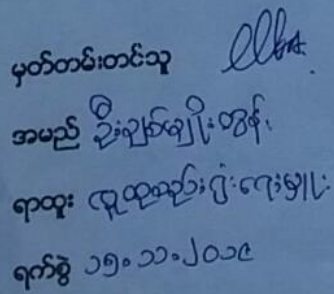 မှတ်တမ်းတင်သူ
အမည် ဦးချစ်မျိုးထွန်း
ရာထူး လူထုစည်းရုံးရေးမှူး
ရက်စွဲ ၁၅.၁၁.၂၀၁၉